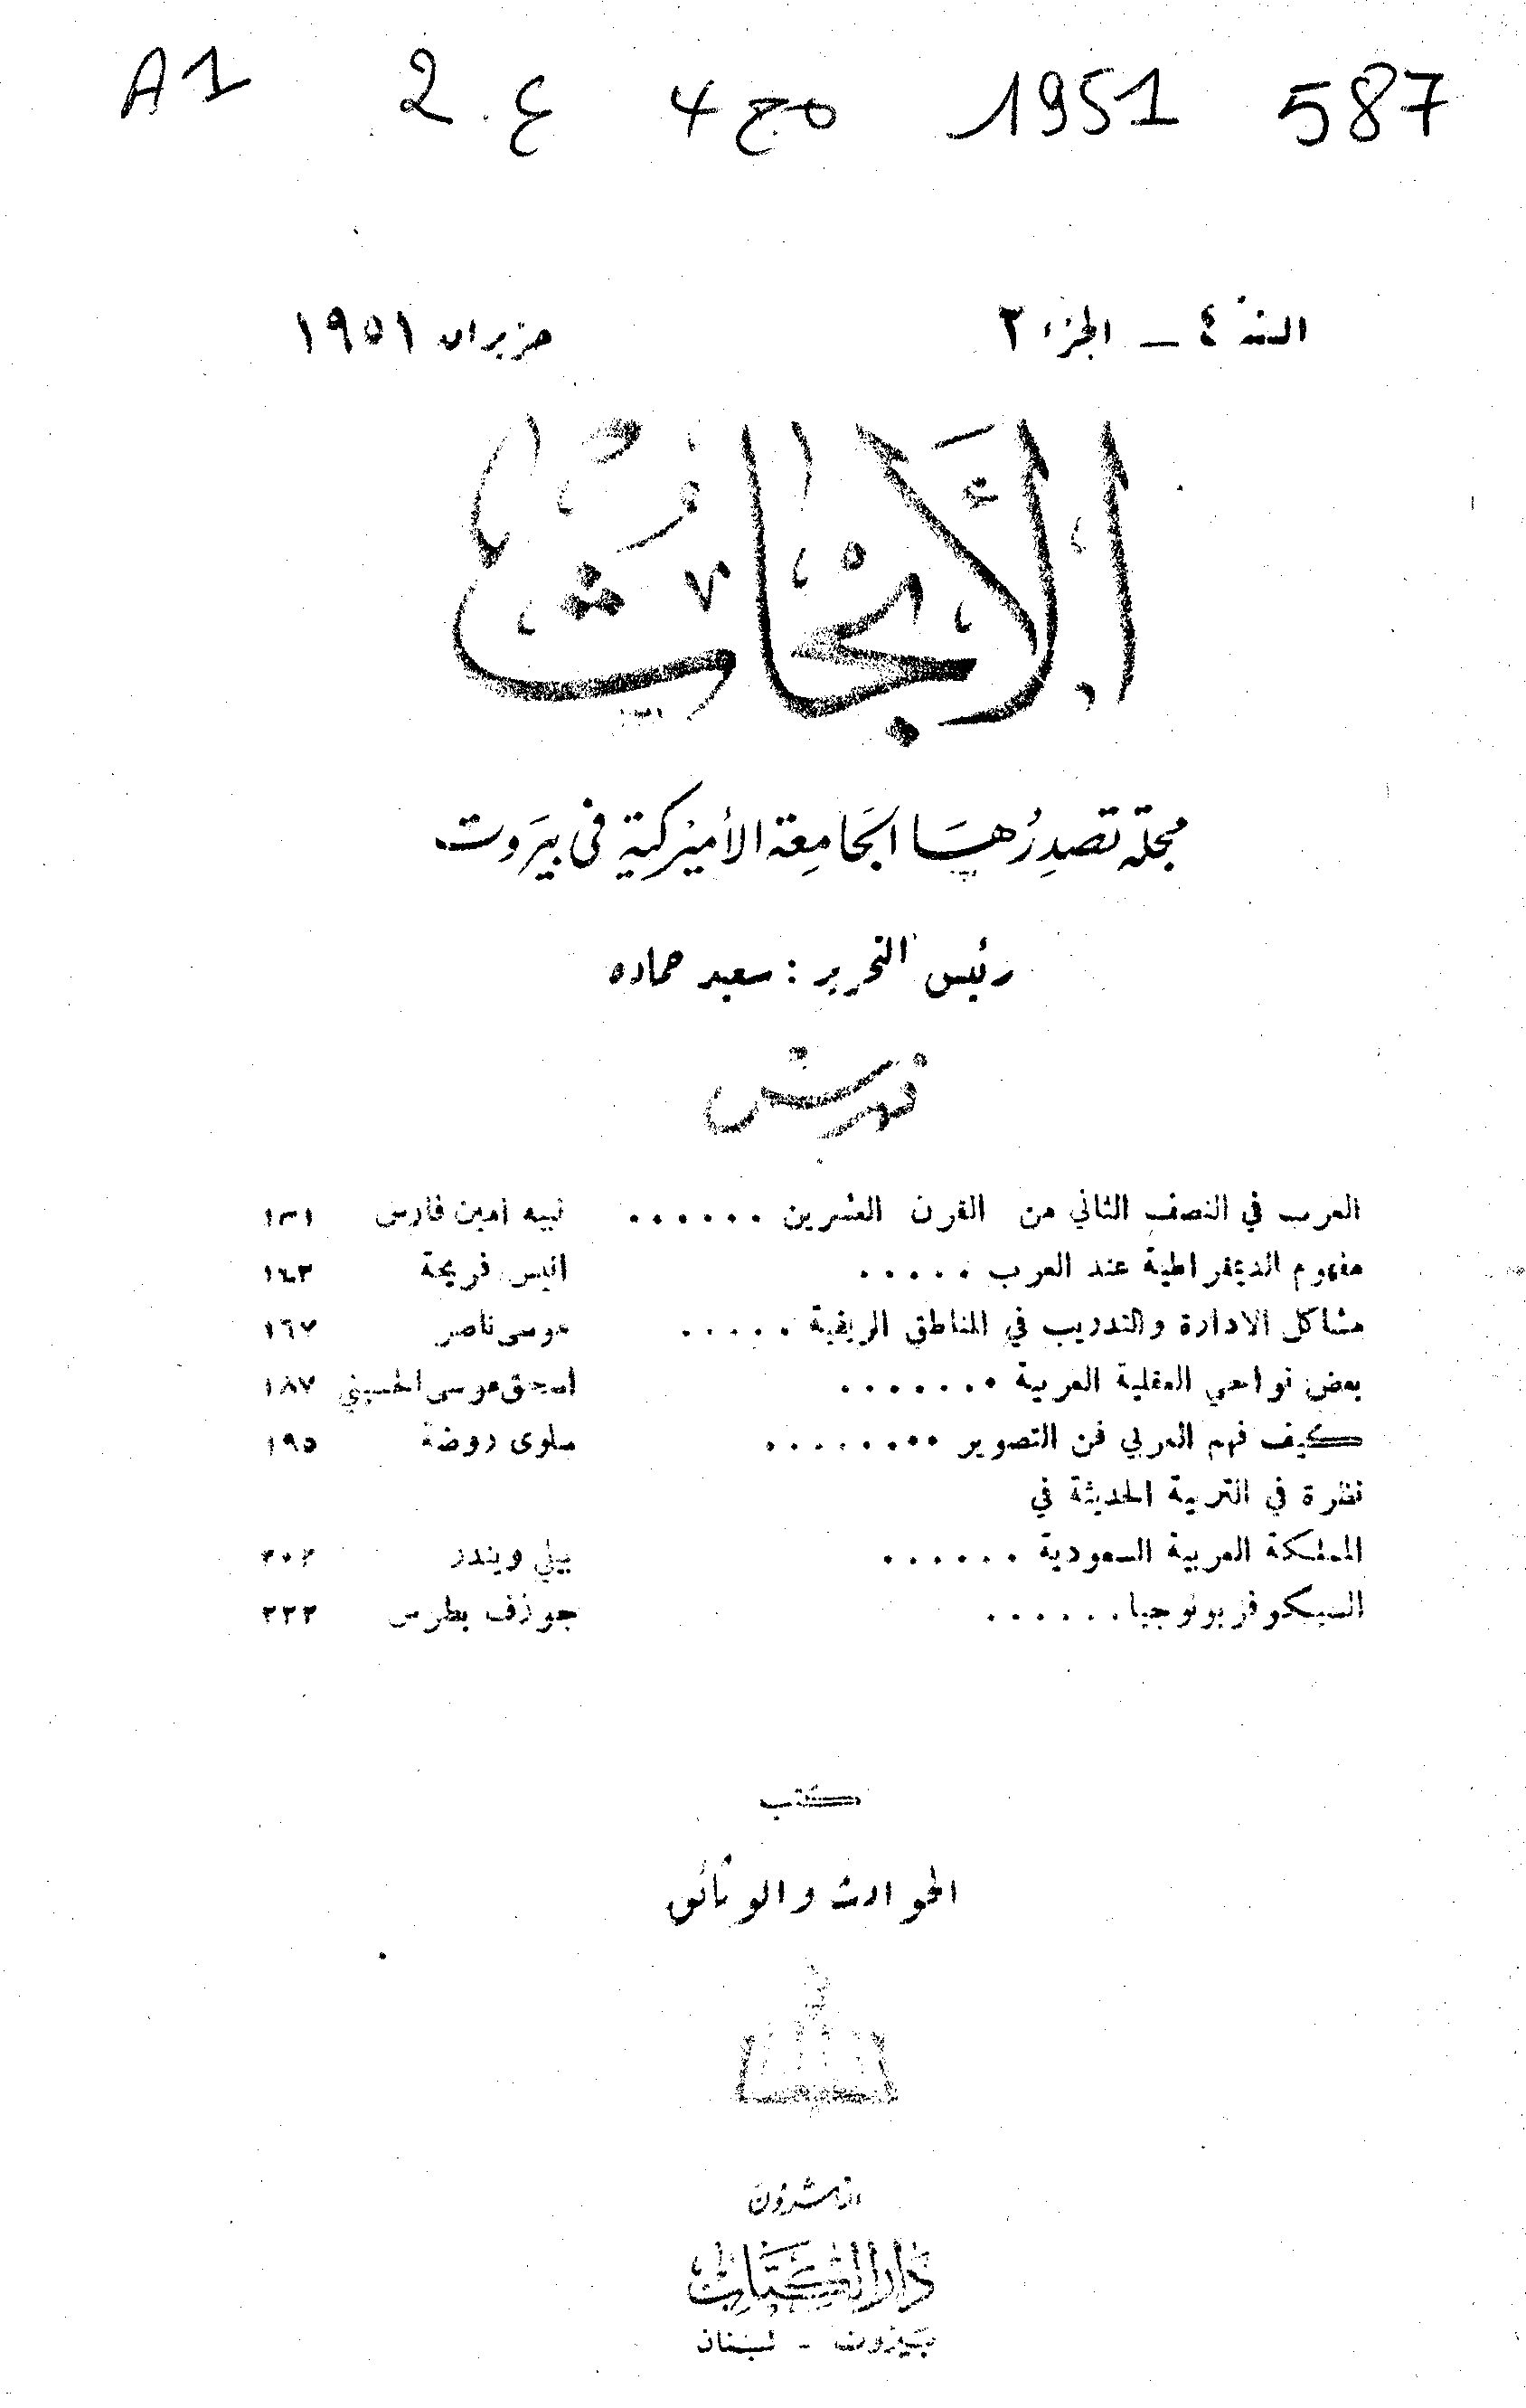 A1 2 ع. 4 مج 1951 587
السنة ٤ – الجزء ٢ حزيران ١٩٥١
الأَبْحَاث
مجلة تصدرها الجامعة الأميركية في بيروت
رئيس التحرير : سعيد حماده
فهرس
العرب في النصف الثاني من القرن العشرين ...... نبيه امين فارس ١٣١
مفهوم الديمقراطية عند العرب ..... انيس فريحة ١٦٣
مشاكل الادارة والتدريب في المناطق الريفية ..... موسى ناصر ١٦٧
بعض نواحي العقلية العربية ....... اسحق موسى الحسيني ١٨٧
كيف فهم العربي فن التصوير ........ سلوى روضة ١٩٥
نظرة في التربية الحديثة في
المملكة العربية السعودية ...... بيلي ويندر ٢٠٢
السيكوفزيولوجيا ...... جوزف بطرس ٢٢٣
كتب
الحوادث والوثائق
الناشرون
دار الكتاب
بيروت - لبنان